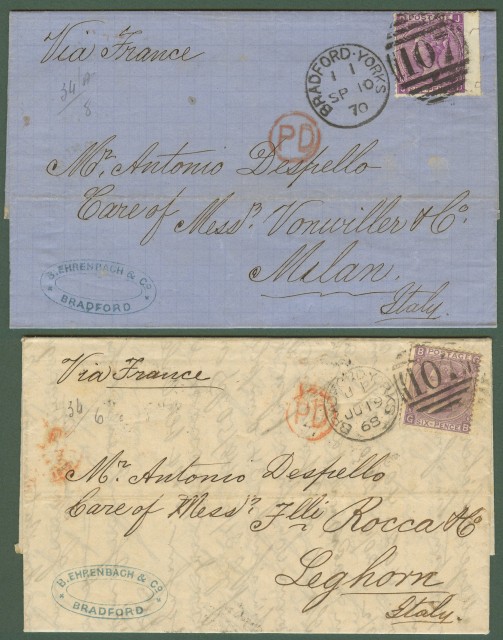 Via France
34/A
8
BRADFORD·YORKS
1 1
SP 10
70
107
POSTAGE
PD
Mr. Antonio Despello
Care of Messrs. Vonwiller & Co.
Milan.
Italy.
B. EHRENBACH & CO.
BRADFORD
Via France
34
6
PD
69
107
B POSTAGE
G SIX-PENCE B
Mr. Antonio Despello
Care of Messrs. Flli Rocca & Co
Leghorn
Italy.
B. EHRENBACH & CO.
BRADFORD